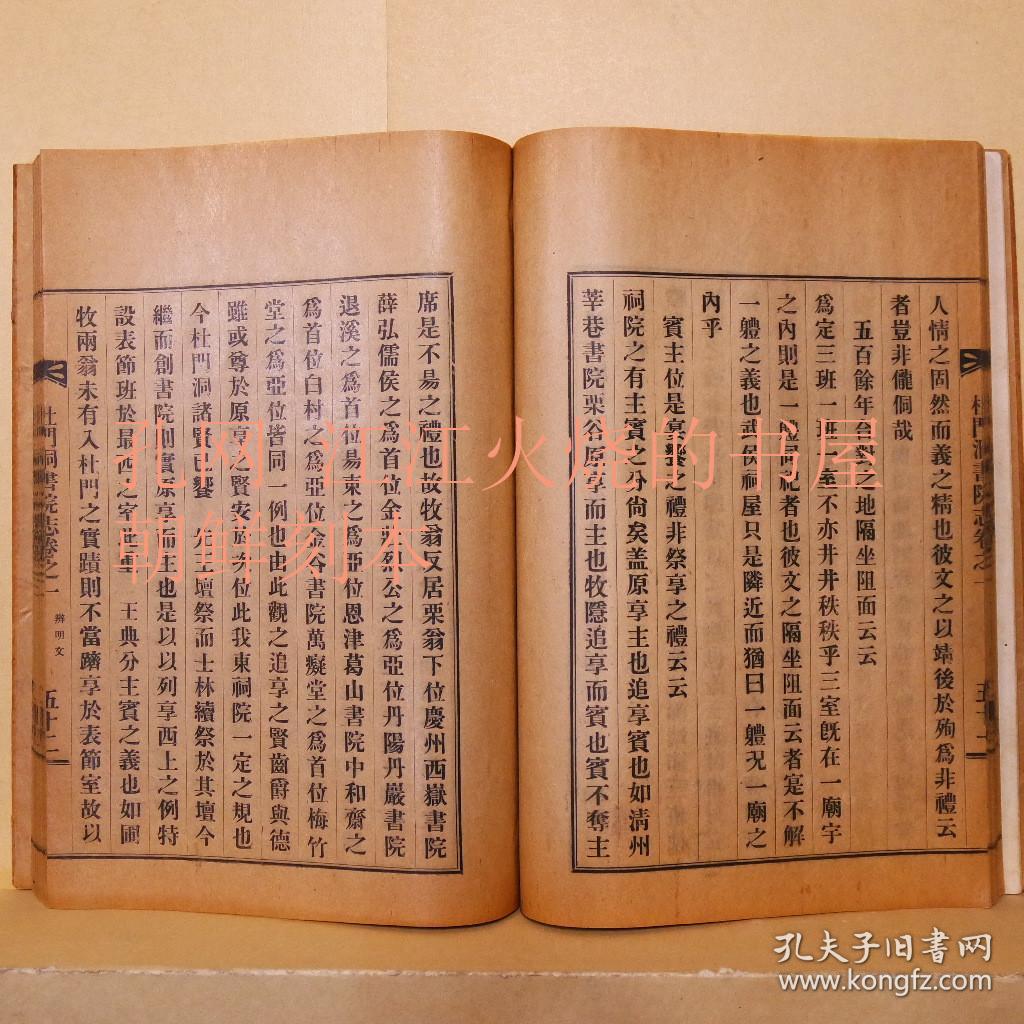 人情之固然而義之精也彼文之以靖後於殉爲非禮云
者豈非儱侗哉
五百餘年台對之地隔坐阻面云云
爲定三班一班一室不亦井井秩秩乎三室旣在一廟宇
之內則是一體同祀者也彼文之隔坐阻面云者寔不解
一軆之義也武侯祠屋只是隣近而猶曰一軆况一廟之
內乎
賓主位是宴饗之禮非祭享之禮云云
祠院之有主賓之分尙矣盖原享主也追享賓也如淸州
莘巷書院栗谷原享而主也牧隱追享而賓也賓不奪主
席是不易之禮也故牧翁反居栗翁下位慶州西嶽書院
薛弘儒侯之爲首位金莊烈公之爲亞位丹陽丹巖書院
退溪之爲首位易東之爲亞位恩津葛山書院中和齋之
爲首位白村之爲亞位金谷書院萬癡堂之爲首位梅竹
堂之爲亞位皆同一例也由此觀之追享之賢齒爵與德
雖或尊於原享之賢安於次位此我東祠院一定之規也
今杜門洞諸賢已饗 先王壇祭而士林續祭於其壇今
繼而創書院則實原享而主也是以以列享西上之例特
設表節班於最西之室 王典分主賓之義也如圃
牧兩翁未有入杜門之實蹟則不當躋享於表節室故以
杜門洞書院志卷之一
辨明文
五十二
孔网 江江火烧的书屋
朝鲜刻本
孔夫子旧书网
www.kongfz.com